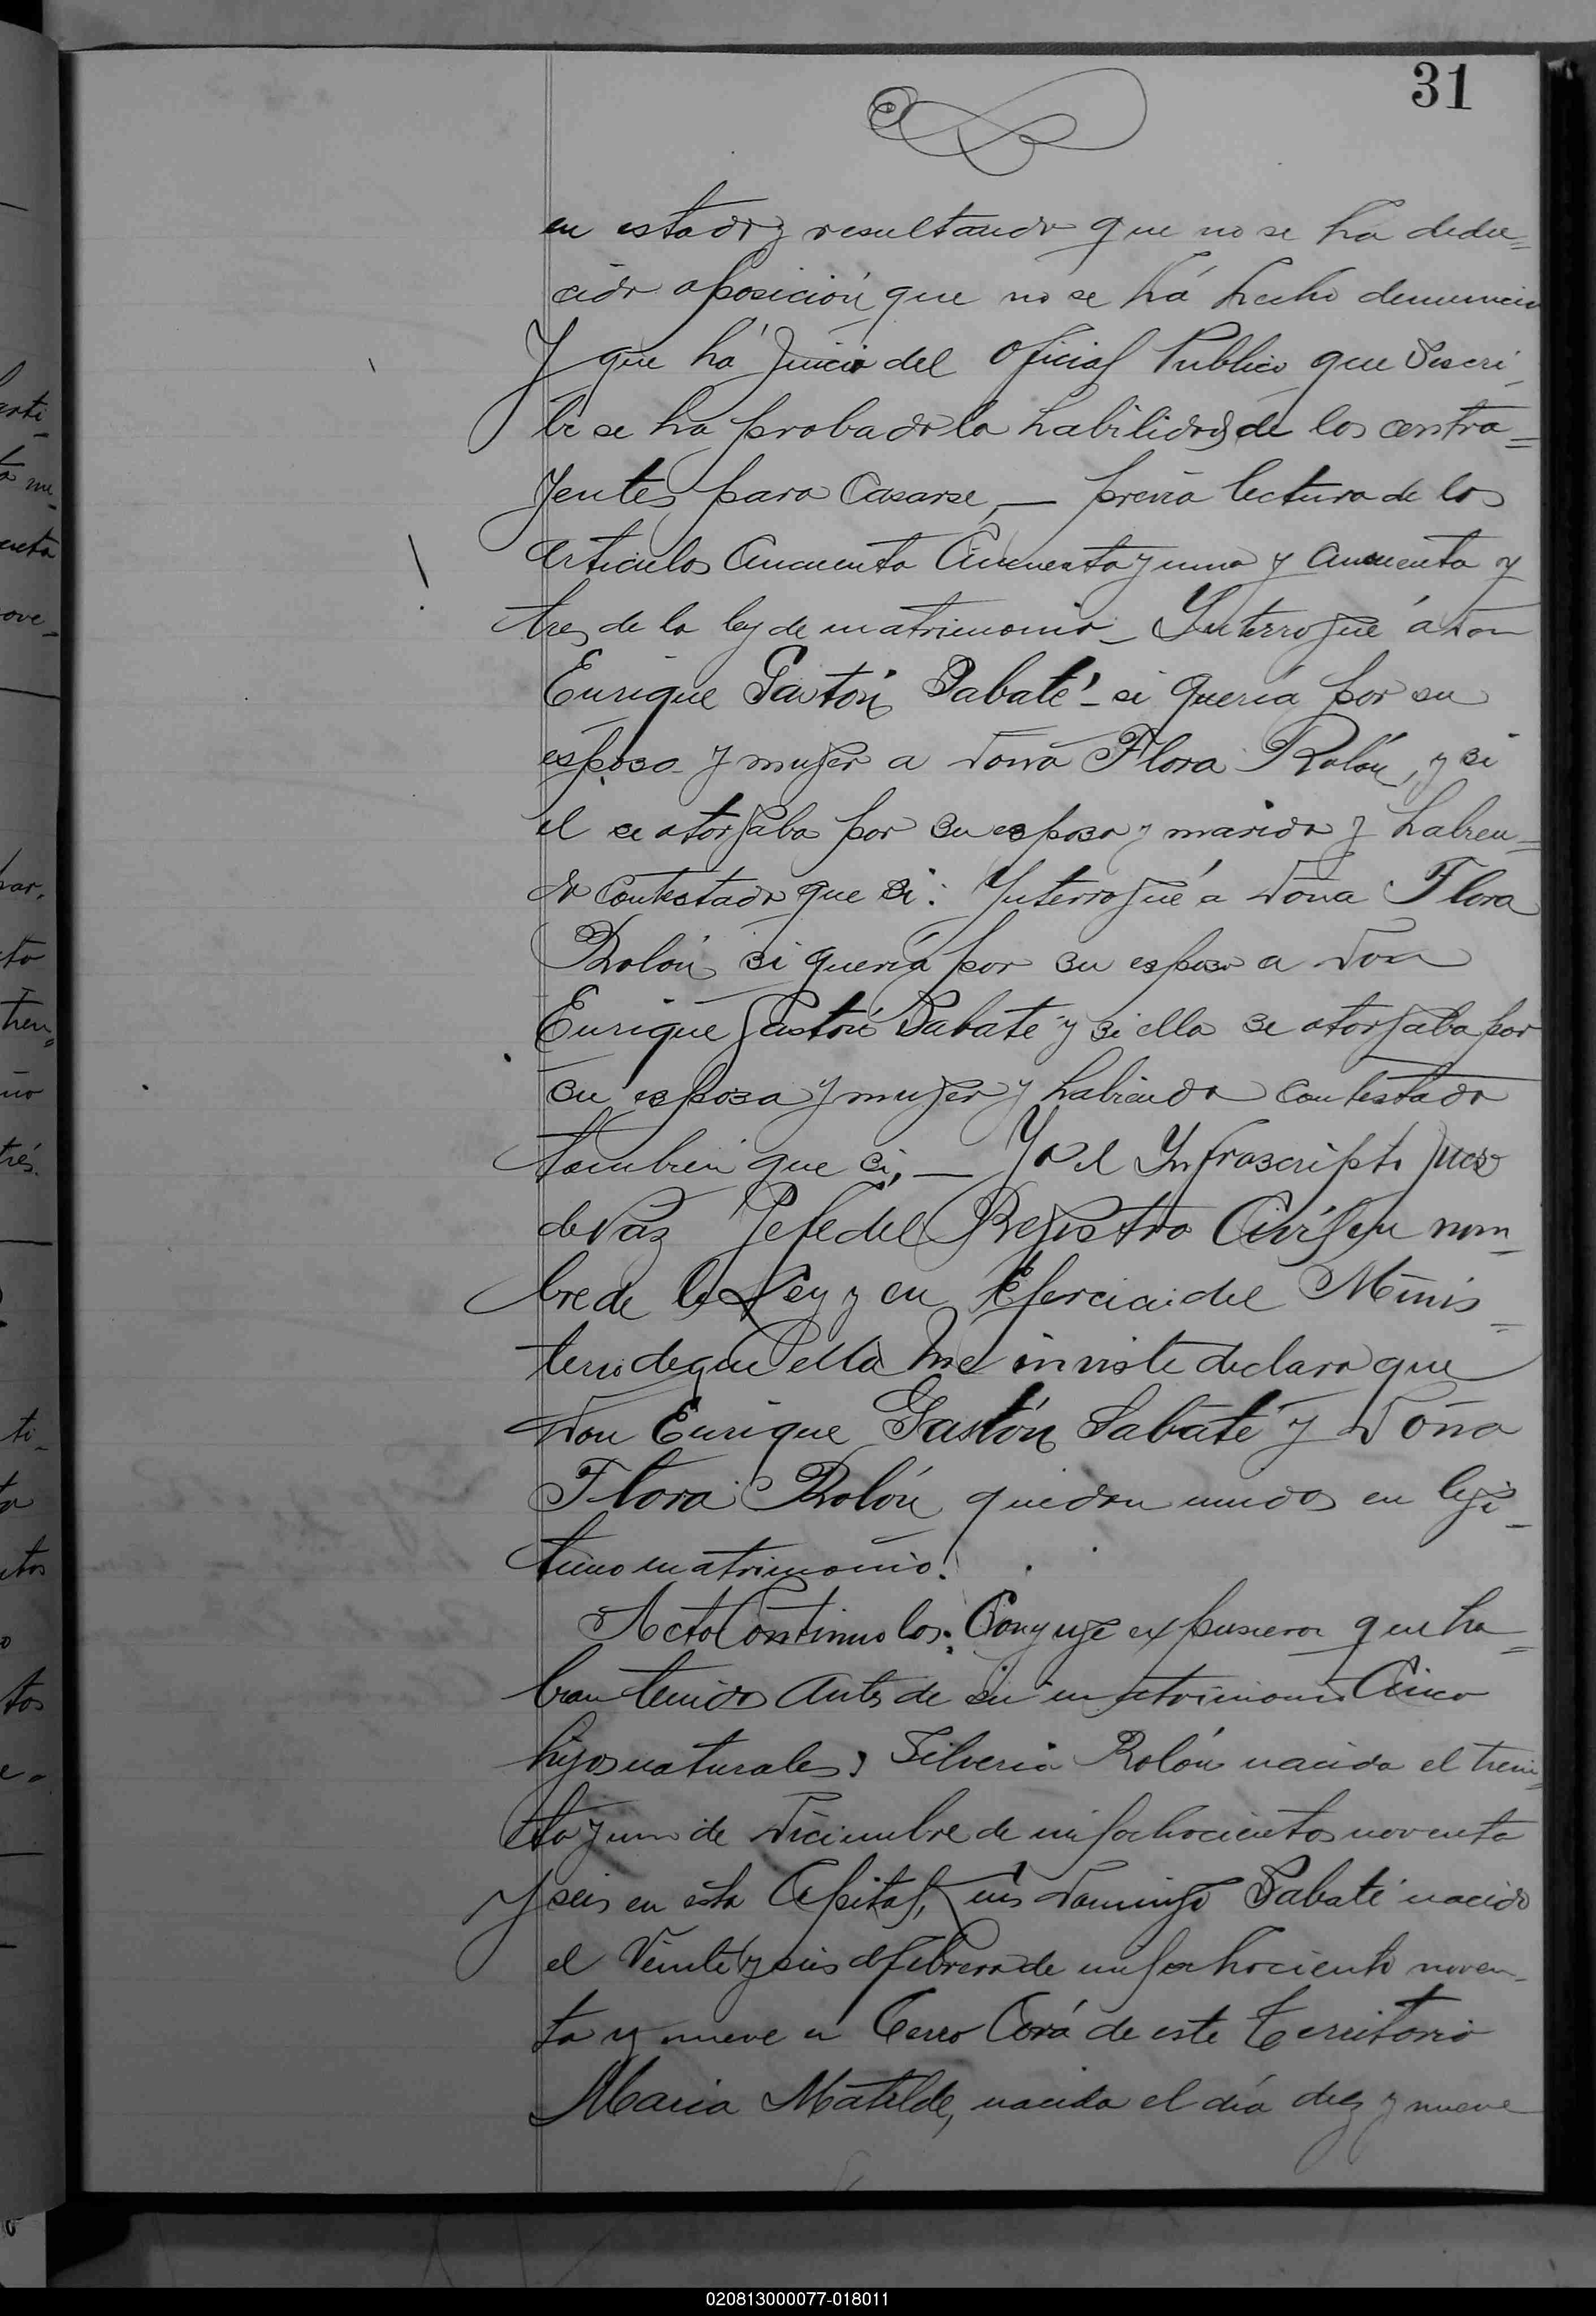 31
en estado y resultando que no se ha dedu=
cido oposición que no se há hecho denuncia
Y que há Juicio del Oficial Publico que Suscri-
be se ha probado la habilidad de los contra=
yentes para Casarse, — previa lectura de los
articulos Cincuenta Cincuenta y uno y Cincuenta y
tres de la ley de matrimonio — Interrogué á Don
Enrique Gastón Sabaté — si queria por su
esposa y mujer a Doña Flora Rolón, y si
el se otorgaba por su esposo y marido y habien=
do Contestado que si: Interrogué a Doña Flora
Rolón si queria por su esposo a Don
Enrique Gastón Sabaté y si ella se otorgaba por
su esposa y mujer y habiendo contestado
tambien que si, — Yo el Infrascripto Juez
de Paz Jefe del Registro Civil en nom-
bre de la Ley y en Ejercicio del Minis-
terio de que ella me inviste declaro que
Don Enrique Gastón Sabaté y Doña
Flora Rolón quedan unidos en legi-
timo matrimonio.
Acto Continuo los Conyuge expusieron que ha=
bian tenido antes de su matrimonio Cinco
hijos naturales; Silveria Rolón nacida el trein=
ta y uno de Diciembre de mil ochocientos noventa
y seis en esta Capital, Luis Domingo Sabaté nacido
el Veinte y seis de febrero de mil ochociento noven-
ta y nueve en Cerro Corá de este Territorio
Maria Matilde, nacida el día diez y nueve
020813000077-018011